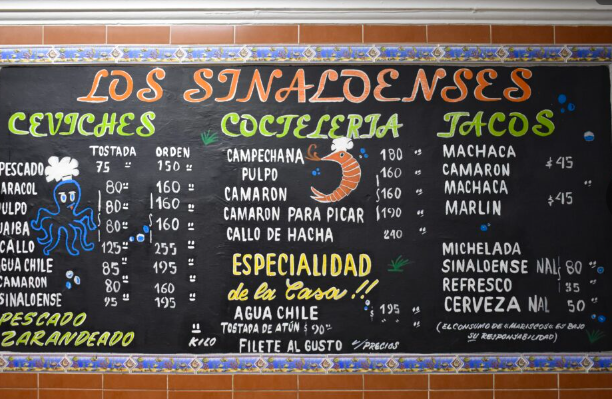 LOS SINALOENSES
CEVICHES
TOSTADA ORDEN
PESCADO 75 150
ARACOL 80 160
ULPO 80 160
JAIBA 80 160
CALLO 125 255
AGUA CHILE 85 195
CAMARON 80 160
SINALOENSE 95 195
PESCADO
ZARANDEADO
KILO
COCTELERIA
CAMPECHANA 180
PULPO 160
CAMARON $160
CAMARON PARA PICAR $190
CALLO DE HACHA 240
ESPECIALIDAD
de la Casa!!
AGUA CHILE $195
TOSTADA DE ATÚN $90
FILETE AL GUSTO S/PRECIOS
TACOS
MACHACA
CAMARON $45
MACHACA
MARLIN $45
MICHELADA
SINALOENSE NAL 80
REFRESCO 35
CERVEZA NAL 50
(EL CONSUMO DE "MARISCOS" ES BAJO
SU RESPONSABILIDAD)